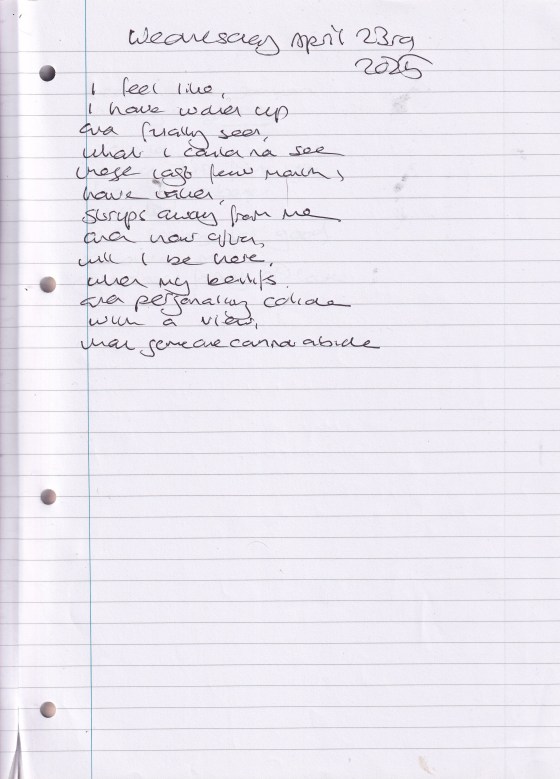 Wednesday April 23rd
2025
I feel like,
I have woken up
and finally seen,
what I could na see
these last few months,
have taken,
strips away from me
and now often,
will I be here,
when my beliefs
and personality collide
with a view,
that someone canna abide